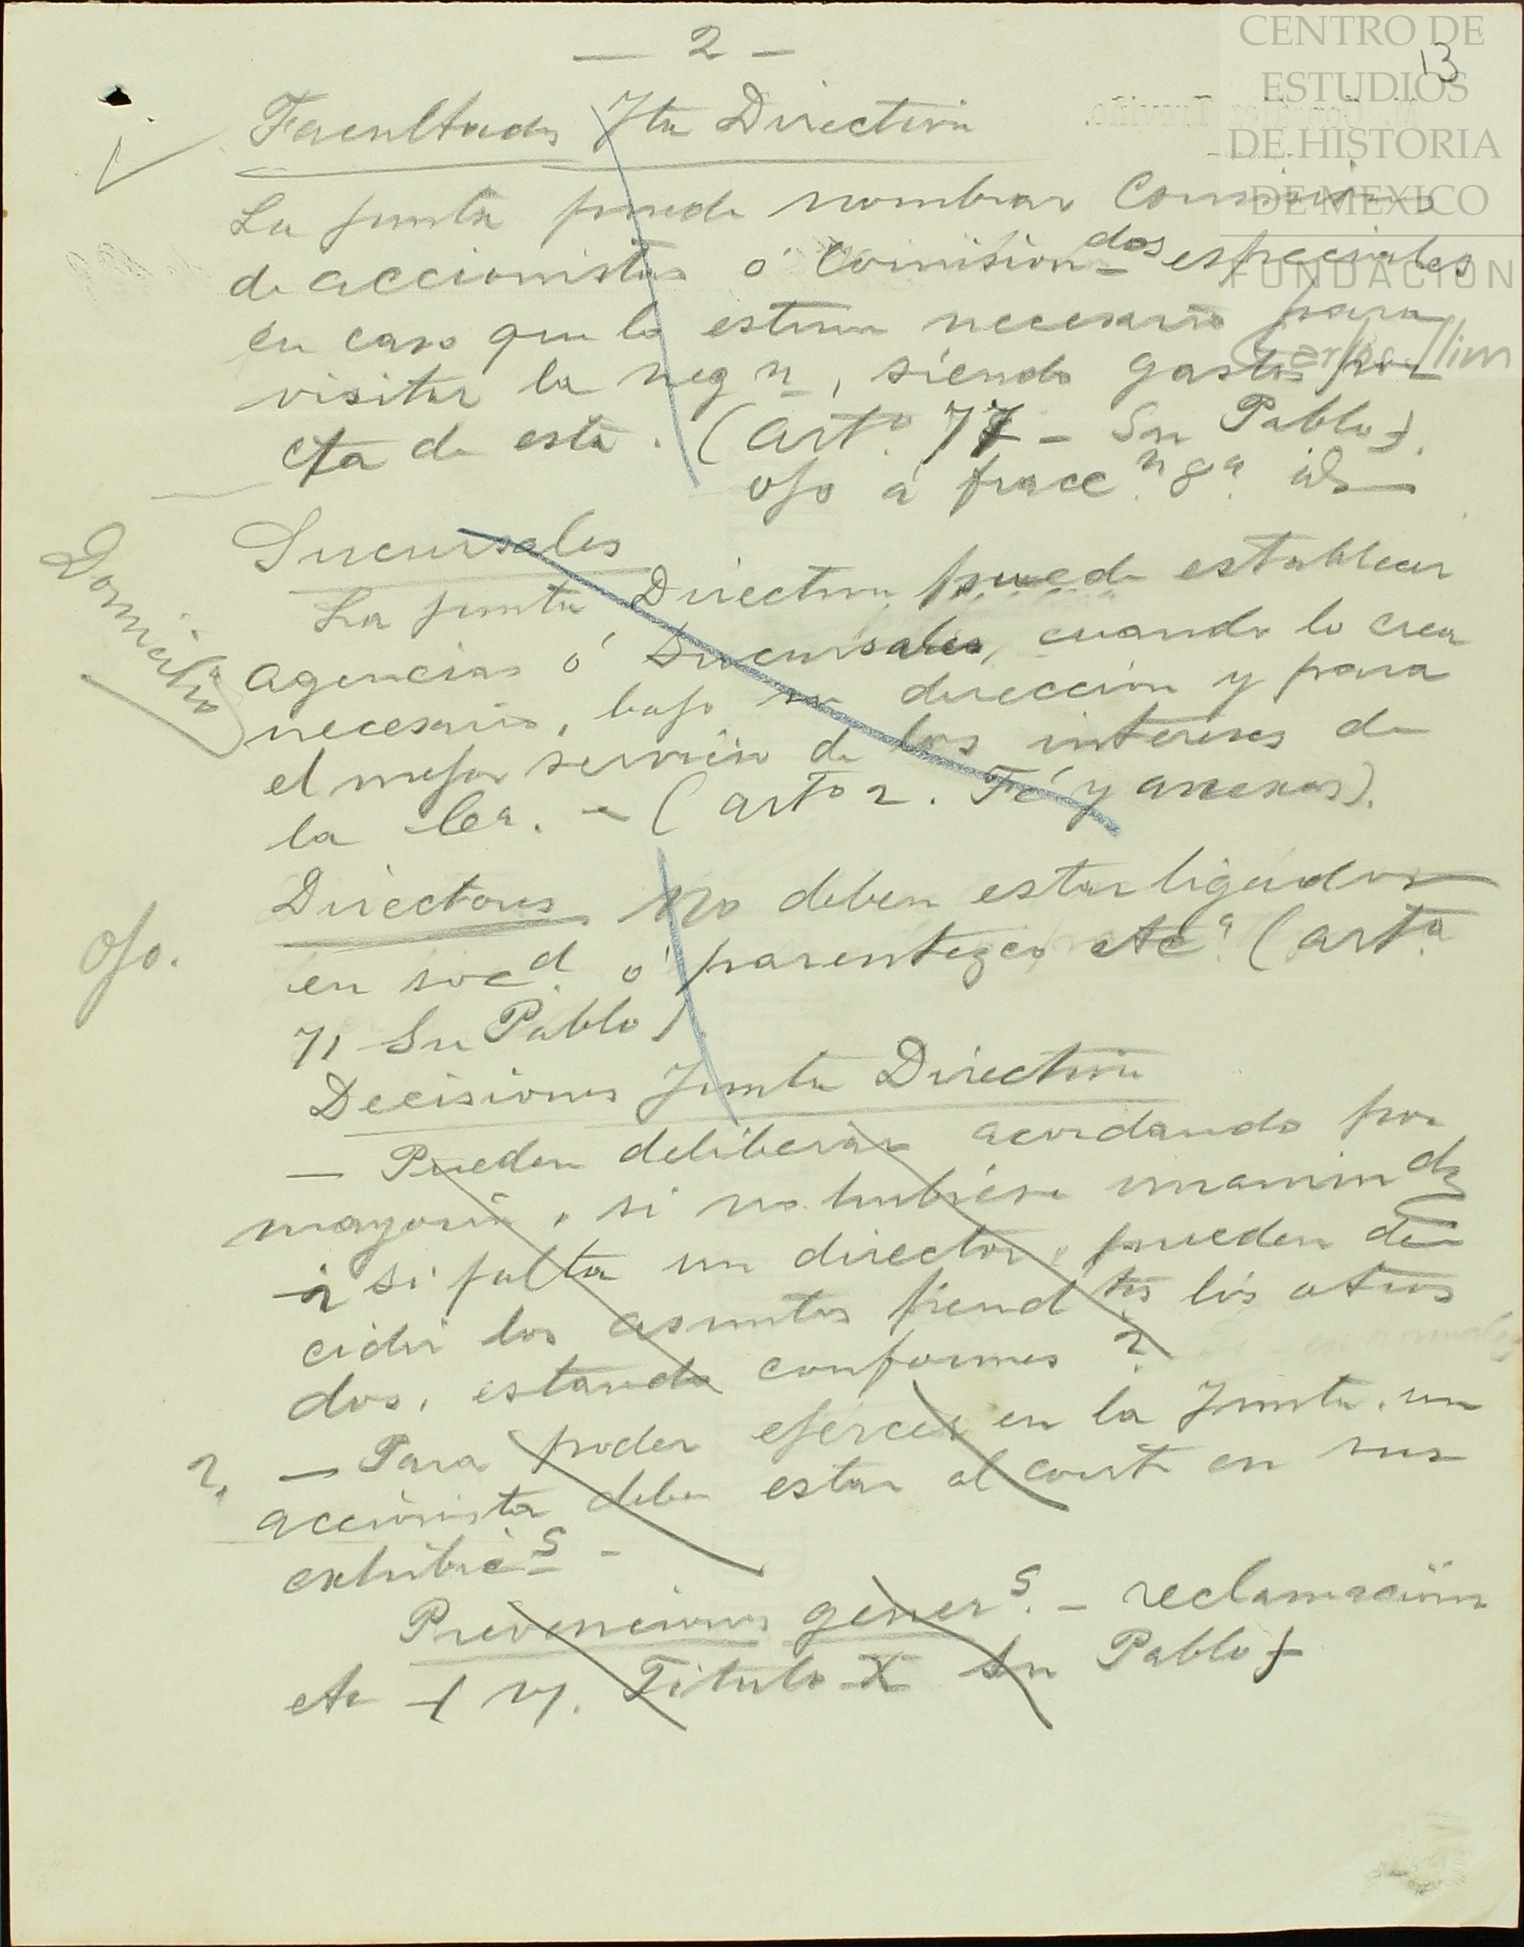 — 2 —
13
CENTRO DE
ESTUDIOS
DE HISTORIA
DE MEXICO
FUNDACIÓN
Carlos Slim
Facultades Jta Directiva
La junta puede nombrar Comisiones
de accionistas ó Comisionados especiales
en caso que lo estime necesario para
visitar la negn, siendo gastos por
cta de esta. (Arto. 77 – Sn Pablo).
ojo á fraccn. 8a. id
Sucursales
Domicilio
La junta Directiva puede establecer
agencias ó Sucursales, cuando lo crea
necesario, bajo su dirección y para
el mejor servicio de los intereses de
la Ca. – (arto 2. Fé y anexas).
Directores No deben estar ligados
ojo.
en socd. ó parentezco etca (arto.
71 Sn Pablo)
Decisiones Junta Directiva
— Pueden deliberar acordando por
mayoria, si no hubiese unanimidd
y si falta un director, pueden de
cidir los asuntos pendtes los otros
dos, estando conformes?
?. — Para poder ejercer en la Junta, un
accionista debe estar al cort en sus
exhibics –
Prevenciones geners. – reclamaciones
etc (V. Titulo X Sn Pablo)